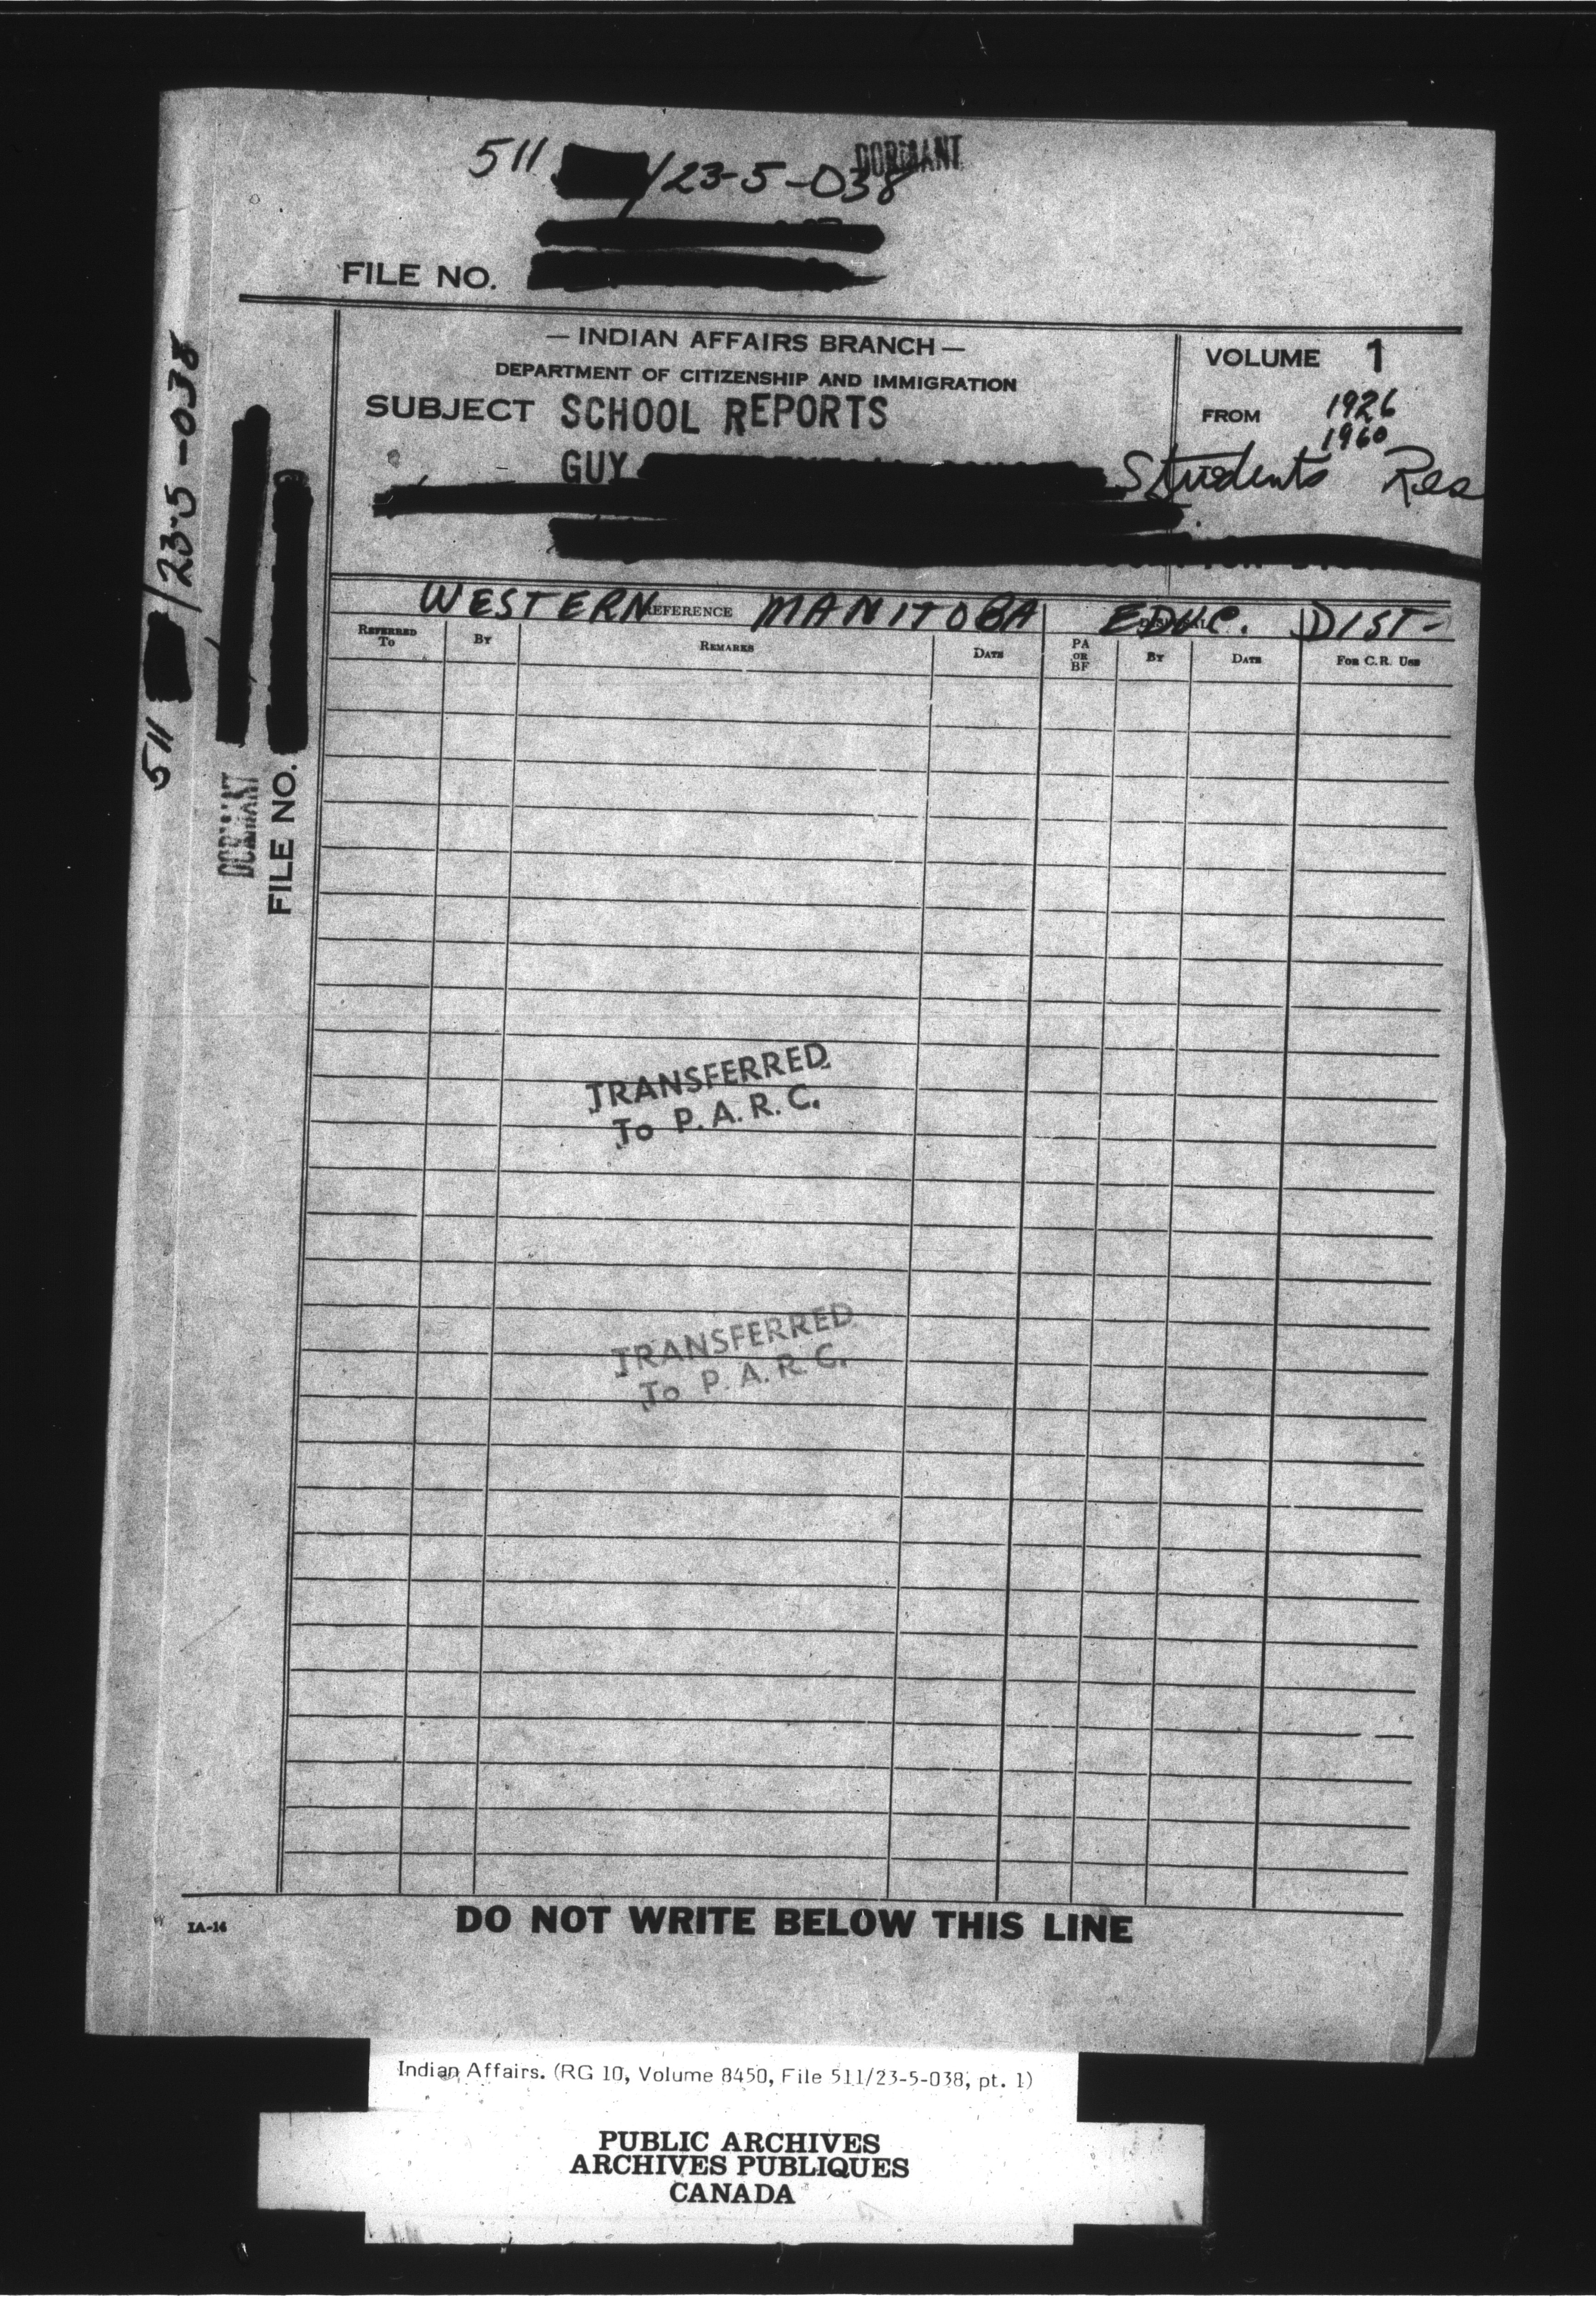 DORMANT
511 /23-5-038
FILE NO.
— INDIAN AFFAIRS BRANCH —
DEPARTMENT OF CITIZENSHIP AND IMMIGRATION
SUBJECT SCHOOL REPORTS
GUY Students Res
VOLUME 1
FROM 1926
1960
TO
WESTERN MANITOBA EDUC. DIST-
REFERENCE
REFERRED TO
BY
REMARKS
DATE
PA OR BF
BY
DATE
FOR C.R. USE
511 /23-5-038
DORMANT
FILE NO.
TRANSFERRED
To P.A.R.C.
TRANSFERRED
To P.A.R.C.
IA-14
DO NOT WRITE BELOW THIS LINE
Indian Affairs. (RG 10, Volume 8450, File 511/23-5-038, pt. 1)
PUBLIC ARCHIVES
ARCHIVES PUBLIQUES
CANADA